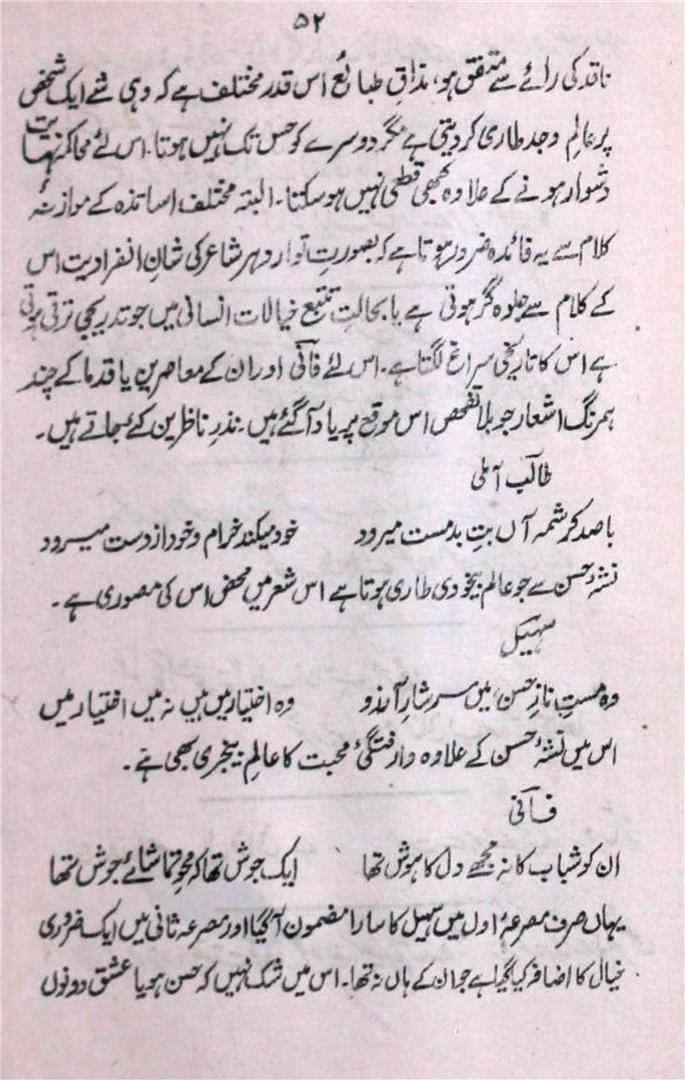 ۵۲
ناقد کی رائے سے متفق ہو، مذاقِ طبائع اس قدر مختلف ہے کہ وہی شے ایک شخص
پر عالمِ وجد طاری کر دیتی ہے مگر دوسرے کو حس تک نہیں ہوتا۔ اس لئے محاکمہ نہایت
دشوار ہونے کے علاوہ کبھی قطعی نہیں ہو سکتا۔ البتہ مختلف اساتذہ کے موازنۂ
کلام سے یہ فائدہ ضرور ہوتا ہے کہ بصورتِ توارد ہر شاعر کی شانِ انفرادیت اس
کے کلام سے جلوہ گر ہوتی ہے یا بحالتِ تتبع خیالات انسانی میں جو تدریجی ترقی ہوتی
ہے اس کا تاریخی سراغ لگتا ہے۔ اس لئے فانی اور ان کے معاصرین یا قدما کے چند
ہمرنگ اشعار جو بلا تفحص اس موقع پر یاد آ گئے ہیں۔ نذرِ ناظرین کئے جاتے ہیں۔
طالب آملی
باصد کرشمہ آں بتِ بدمست میرود خود میکند خرام و خود از دست میرود
نشۂ حسن سے جو عالم بیخودی طاری ہوتا ہے اس شعر میں محض اس کی مصوری ہے۔
سہیل
وہ مستِ نازِ حسن، میں سرشارِ آرزو وہ اختیار میں ہیں نہ میں اختیار میں
اس میں نشۂ حسن کے علاوہ وارفتگیٔ محبت کا عالمِ بیخبری بھی ہے۔
فانی
ان کو شباب کا نہ مجھے دل کا ہوش تھا ایک جوش تھا کہ محوِ تماشائے جوش تھا
یہاں صرف مصرعۂ اول میں سہیل کا سارا مضمون آ گیا اور مصرعہ ثانی میں ایک ضروری
خیال کا اضافہ کیا گیا ہے جو ان کے ہاں نہ تھا۔ اس میں شک نہیں کہ حسن ہو یا عشق دونوں